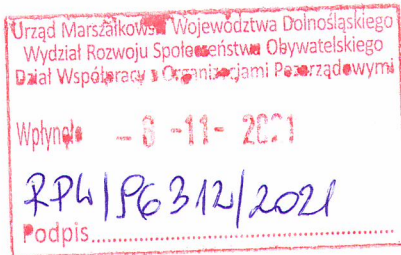 Urząd Marszałkowski Województwa Dolnośląskiego
Wydział Rozwoju Społeczeństwa Obywatelskiego
Dział Współpracy z Organizacjami Pozarządowymi
Wpłynęło - 8 -11- 2021
RPW/96312/2021
Podpis..............................